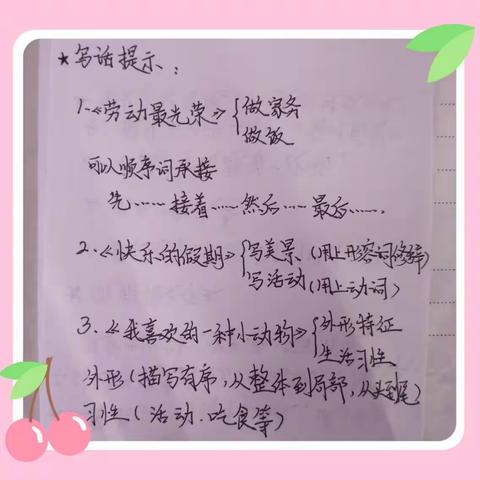 ★写话提示:
1.《劳动最光荣》{做家务
做饭
可以顺序词承接
先……接着……然后……最后……
2.《快乐的假期》{写美景(用上形容词修辞)
写活动(用上动词)
3.《我喜欢的一种小动物》{外形特征
生活习性
外形(描写有序,从整体到局部,从头到尾)
习性(活动.吃食等)